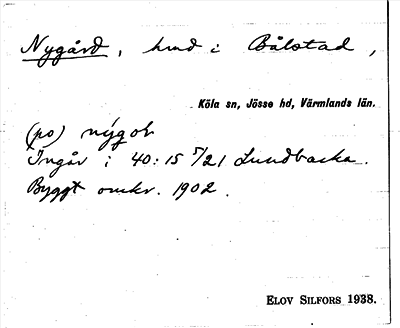 Nygård, hmd i Bålstad,
Köla sn, Jösse hd, Värmlands län.
(po) nýgoƚ
Ingår i 40:15 5/21 Lundbacka.
Byggt omkr. 1902.
ELOV SILFORS 1938.